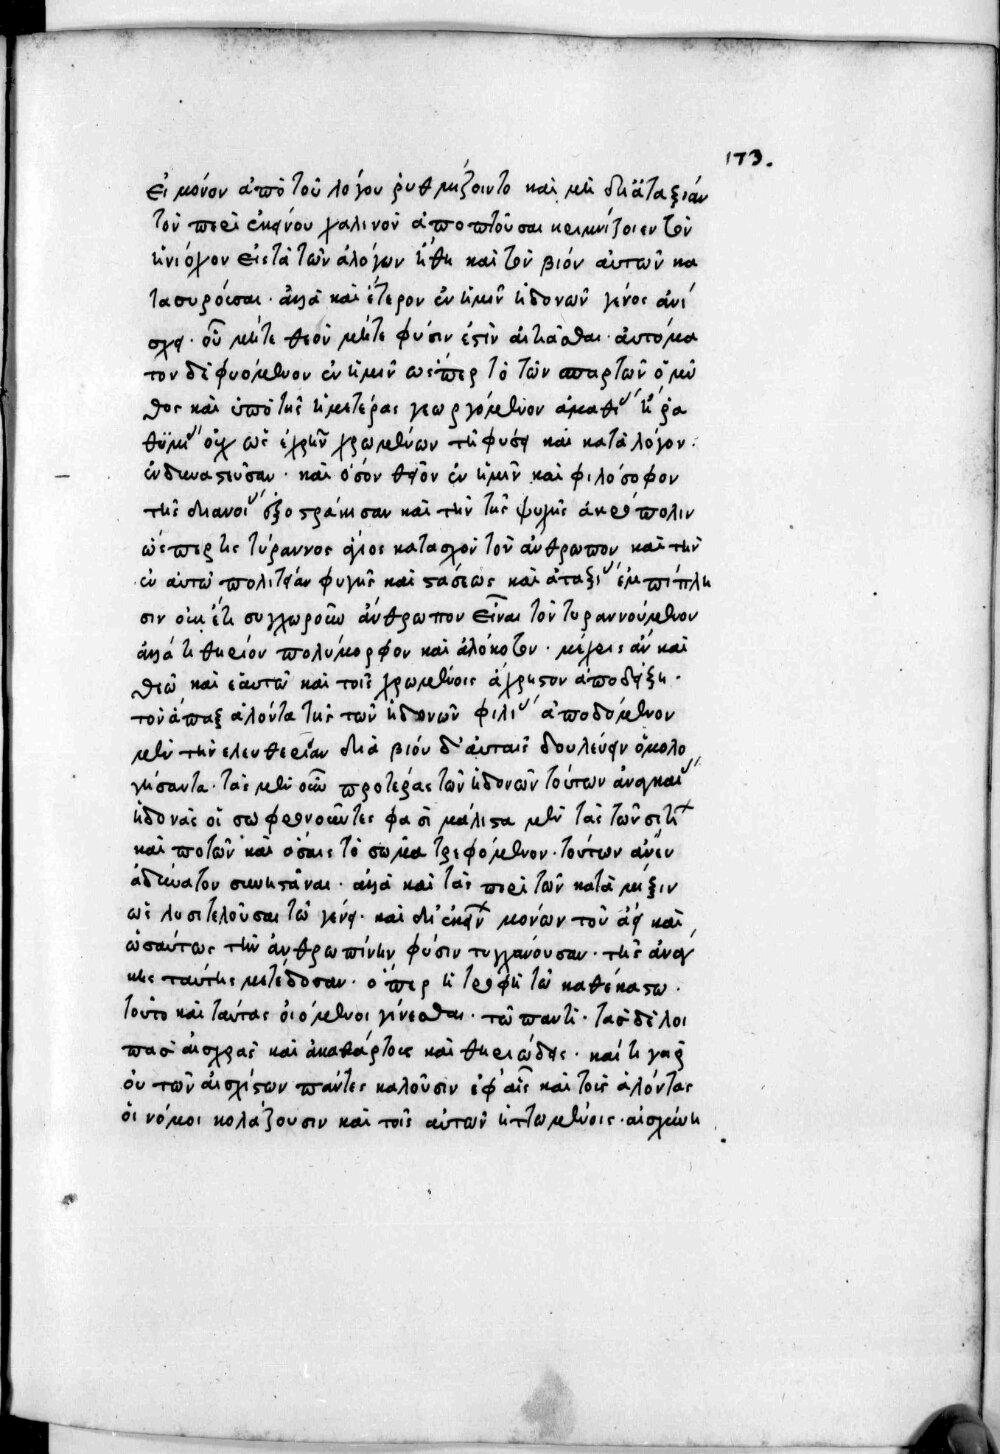 173.
εἰ μόνον ἀπὸ τοῦ λόγου ῥυθμίζοιντο καὶ μὴ δι' ἀταξίαν
τὸν περὶ ἐκείνου χαλινὸν ἀποπτύσαι κρημνίζοιεν τὸν
ἡνίοχον εἰς τὰ τῶν ἀλόγων ἤθη καὶ τὸν βίον αὐτῶν κα
τασυρεῖσαι· ἀλλὰ καὶ ἕτερον ἐν ἡμῖν ἡδονῶν γένος ἀνί
σχει· οὗ μήτε θεὸν μήτε φύσιν ἐστὶν αἰτιᾶσθαι· αὐτόμα
τον δὲ φυόμενον ἐν ἡμῖν ὥσπερ τὸ τῶν σπαρτῶν ὁ μῦ
θος καὶ ὑπὸ τῆς ἡμετέρας γεωργούμενον ἀμαθίας ἢ ῥα
θυμίας οὐχ ὡς ἐχρῆν χρωμένων τῇ φύσει καὶ κατὰ λόγον·
ἐνδυναστεῦσαν· καὶ ὅσον θεῖον ἐν ἡμῖν καὶ φιλόσοφον
τῆς διανοίας ἐξοστράκισαν καὶ τὴν τῆς ψυχῆς ἀκρόπολιν
ὥσπερ τις τύραννος ἄγιος κατασχὸν τὸν ἄνθρωπον καὶ τὴν
ἐν αὐτῷ πολιτείαν φυγῆς καὶ στάσεως καὶ ἀταξίας ἐμπίπλη
σιν οὐκ ἔτι συγχωροῦν ἄνθρωπον εἶναι τὸν τυραννούμενον
ἀλλά τι θηρίον πολύμορφον καὶ ἀλόκοτον· μέχρις ἂν καὶ
θεῷ καὶ ἑαυτῷ καὶ τοῖς χρωμένοις ἄχρηστον ἀποδείξῃ·
τὸν ἅπαξ ἁλόντα τῆς τῶν ἡδονῶν φιλίας ἀποδόμενον
μὲν τὴν ἐλευθερίαν διὰ βίου δ' αὐταῖς δουλεύειν ὁμολο
γήσαντα· τὰς μὲν οὖν προτέρας τῶν ἡδονῶν τούτων ἀναγκαίας
ἡδονὰς οἱ σωφρονοῦντες φασὶ μάλιστα μὲν τὰς τῶν σιτίων
καὶ ποτῶν καὶ ὅσαις τὸ σῶμα τρεφόμενον· τούτων ἄνευ
ἀδύνατον συνιστάναι· ἀλλὰ καὶ τὰς περὶ τῶν κατὰ μίξιν
ὡς λυσιτελούσαι τῷ γένει· καὶ δι' ἐκείνων μόνων τοῦ ἀεὶ καὶ
ὡσαύτως τὴν ἀνθρωπίνην φύσιν τυγχάνουσαν· τῆς ἀνάγ
κης ταύτης μετέδοσαν· ὅπερ ἡ τροφὴ τῷ καθέκαστῳ·
τοῦτο καὶ ταύτας οἰόμενοι γίνεσθαι· τῷ παντί· τὰς δὲ λοι
πὰς αἰσχρὰς καὶ ἀκαθάρτους καὶ θηριώδεις· καί τι γὰρ
οὐ τῶν αἰσχίστων πάντες καλοῦσιν ἐφ' αἷς καὶ τοὺς ἁλόντας
οἱ νόμοι κολάζουσιν καὶ τοῖς αὐτῶν ἡττωμένοις· αἰσχύνη